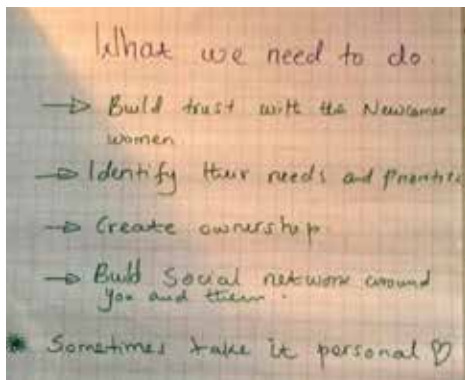 What we need to do.
→ Build trust with the Newcomer
women.
→ Identify their needs and Prioritie
→ Create ownership.
→ Build Social network around
you and them.
* Sometimes take it personal ♡